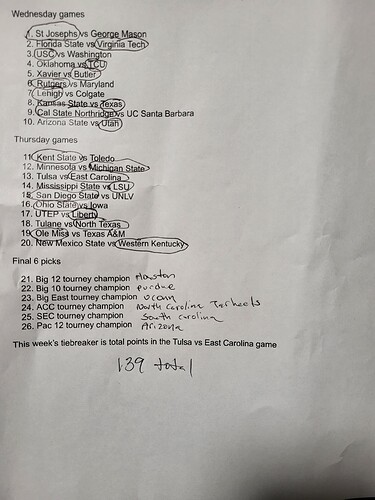 Wednesday games
1. St Josephs vs George Mason
2. Florida State vs Virginia Tech
3. USC vs Washington
4. Oklahoma vs TCU
5. Xavier vs Butler
6. Rutgers vs Maryland
7. Lehigh vs Colgate
8. Kansas State vs Texas
9. Cal State Northridge vs UC Santa Barbara
10. Arizona State vs Utah
Thursday games
11. Kent State vs Toledo
12. Minnesota vs Michigan State
13. Tulsa vs East Carolina
14. Mississippi State vs LSU
15. San Diego State vs UNLV
16. Ohio State vs Iowa
17. UTEP vs Liberty
18. Tulane vs North Texas
19. Ole Miss vs Texas A&M
20. New Mexico State vs Western Kentucky
Final 6 picks
21. Big 12 tourney champion Houston
22. Big 10 tourney champion purdue
23. Big East tourney champion uconn
24. ACC tourney champion North Carolina Tarheels
25. SEC tourney champion South carolina
26. Pac 12 tourney champion Arizona
This week's tiebreaker is total points in the Tulsa vs East Carolina game
139 total